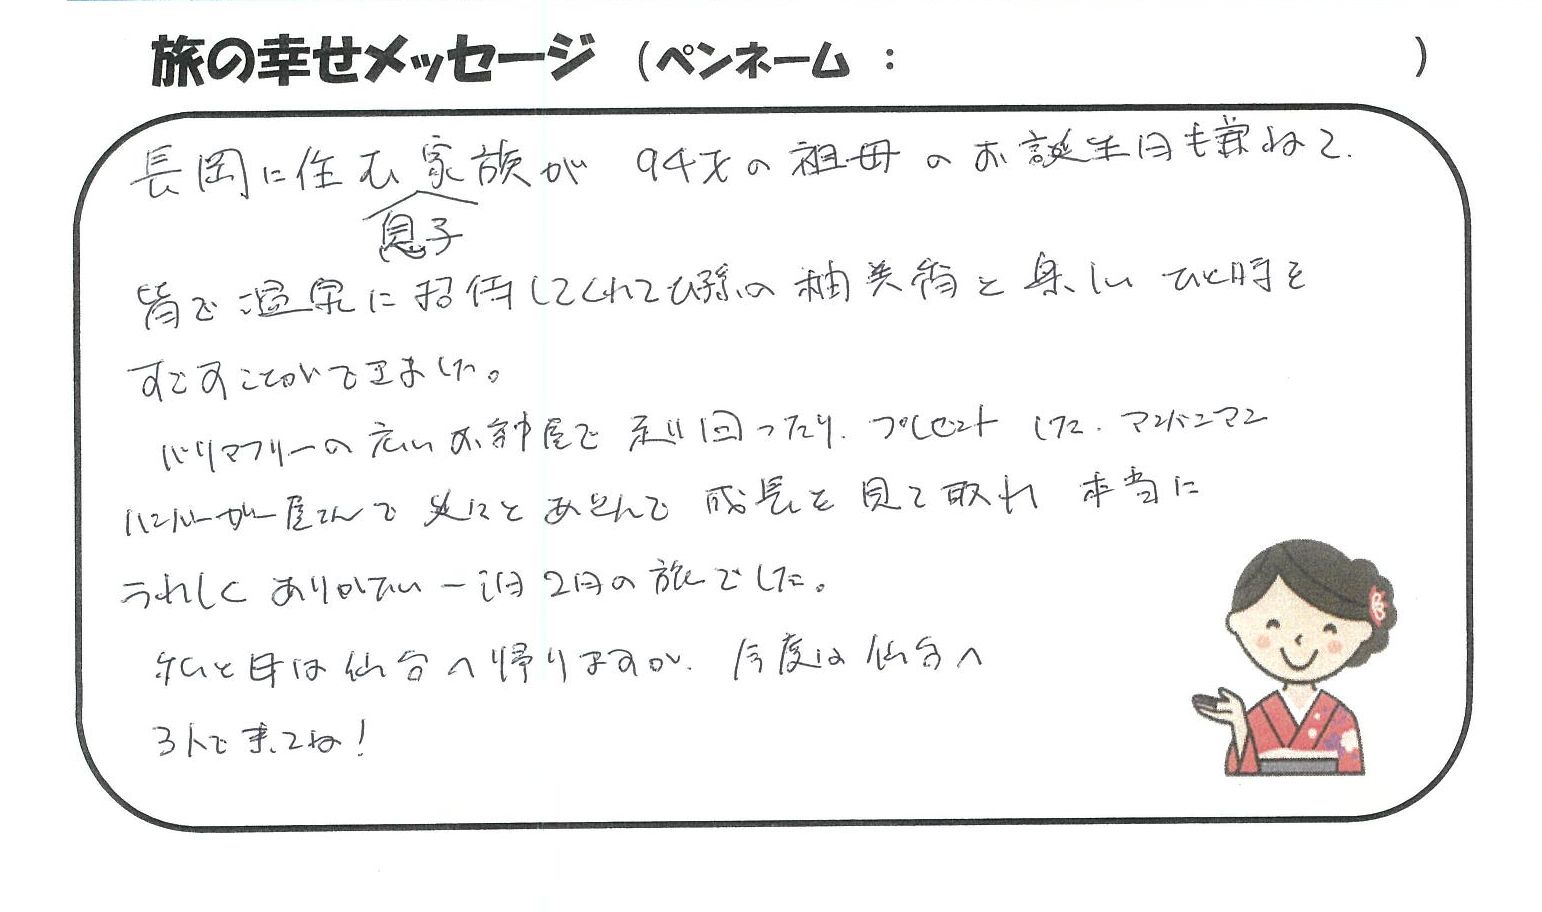 旅の幸せメッセージ (ペンネーム : )
長岡に住む家族が 94才の祖母のお誕生日も兼ねて、
息子
皆で温泉に招待してくれてひ孫の柚美香と楽しいひと時を
すごすことができました。
バリアフリーの広いお部屋で走り回ったり、プレゼントした、アンパンマン
ハンバーガー屋さんで次にとあそんで成長を見て取れ 本当に
うれしくありがたい一泊2日の旅でした。
私と母は仙台へ帰りますが、今度は仙台へ
3人で来てね!